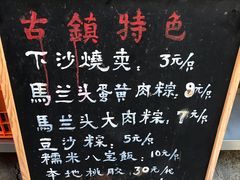 古鎮特色
下沙燒卖: 3元/只
馬兰头蛋黄肉粽: 9元/只
馬兰头大肉粽, 7元/只
豆沙粽: 5元/只
糯米八宝飯: 10元/只
本地桃胶: 30元/